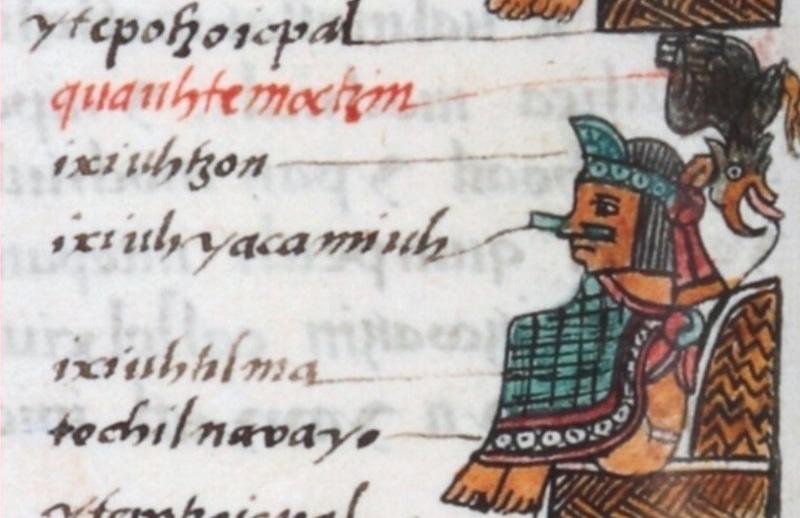 ytepohoicpal
quauhtemoctzin
ixiuhtzon
ixiuhyacamiuh
ixiuhtilma
tochilnavayo